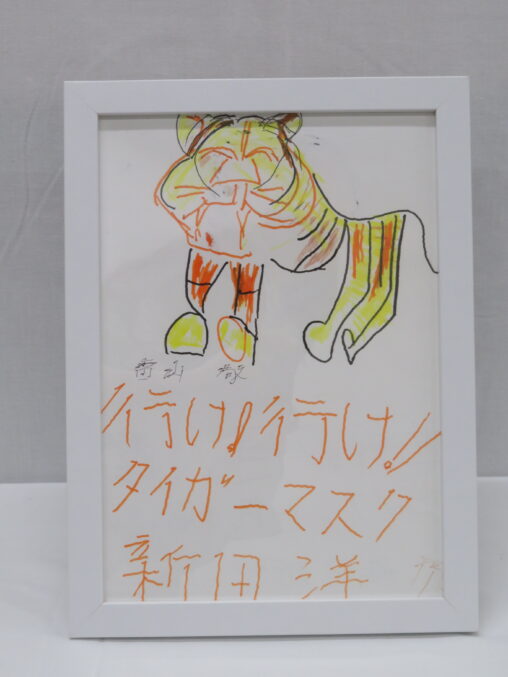 香山 敬
行け!行け!!
タイガーマスク
新田 洋